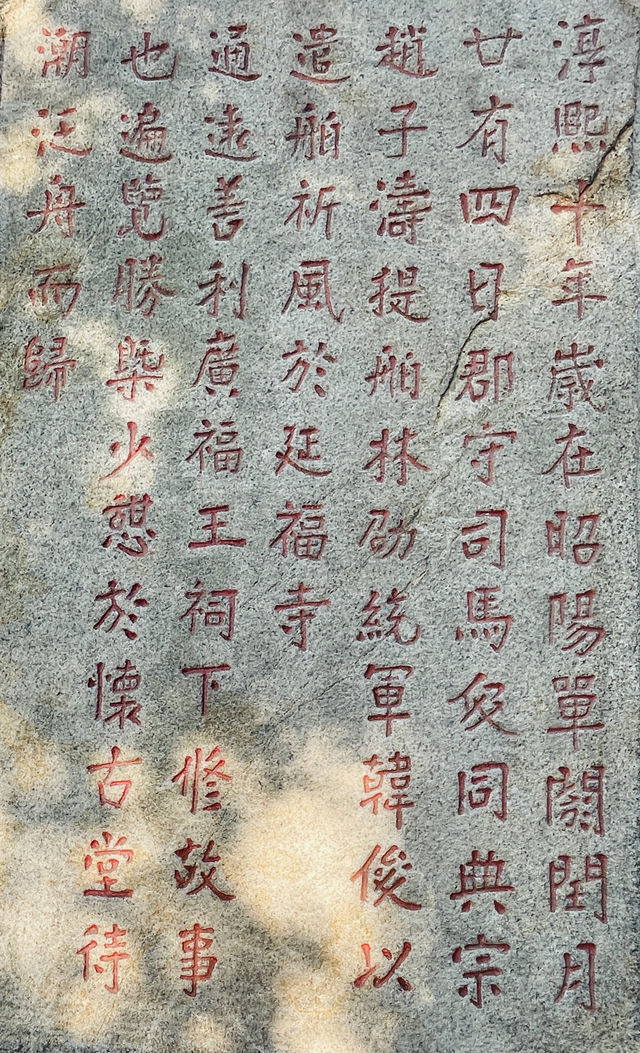 淳熙十年歲在昭陽單閼閏月
廿有四日郡守司馬伋同典宗
趙子濤提舶林劭統軍韓俊以
遣舶祈風於延福寺
通遠善利廣福王祠下修故事
也遍覽勝槩少憩於懷古堂待
潮泛舟而歸